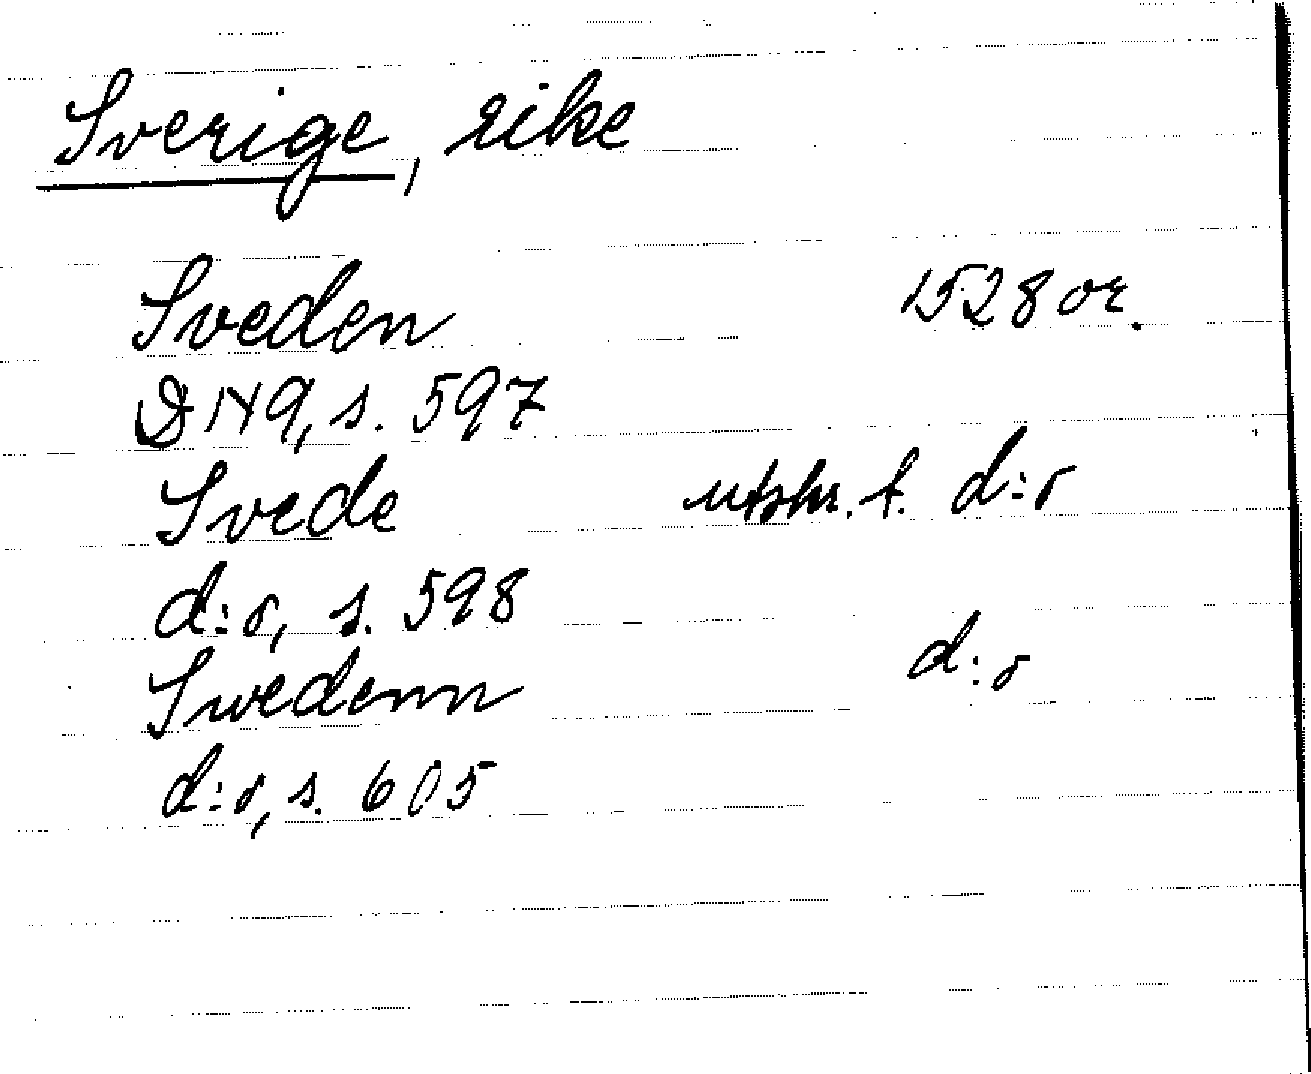 Sverige, rike
Sveden 1528 or.
DN 9, s. 597
Svede utskr. f. d:o
d:o, s. 598
Swedenn d:o
d:o, s. 605